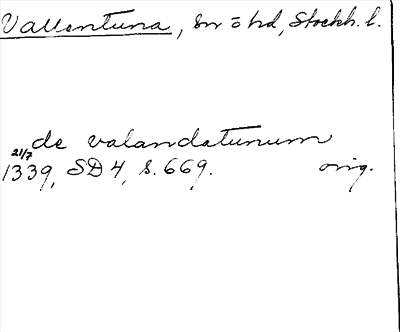 Vallentuna, sn o hd, Stockh. l.
de valandatunum
21/7
1339, SD 4, s. 669. orig.